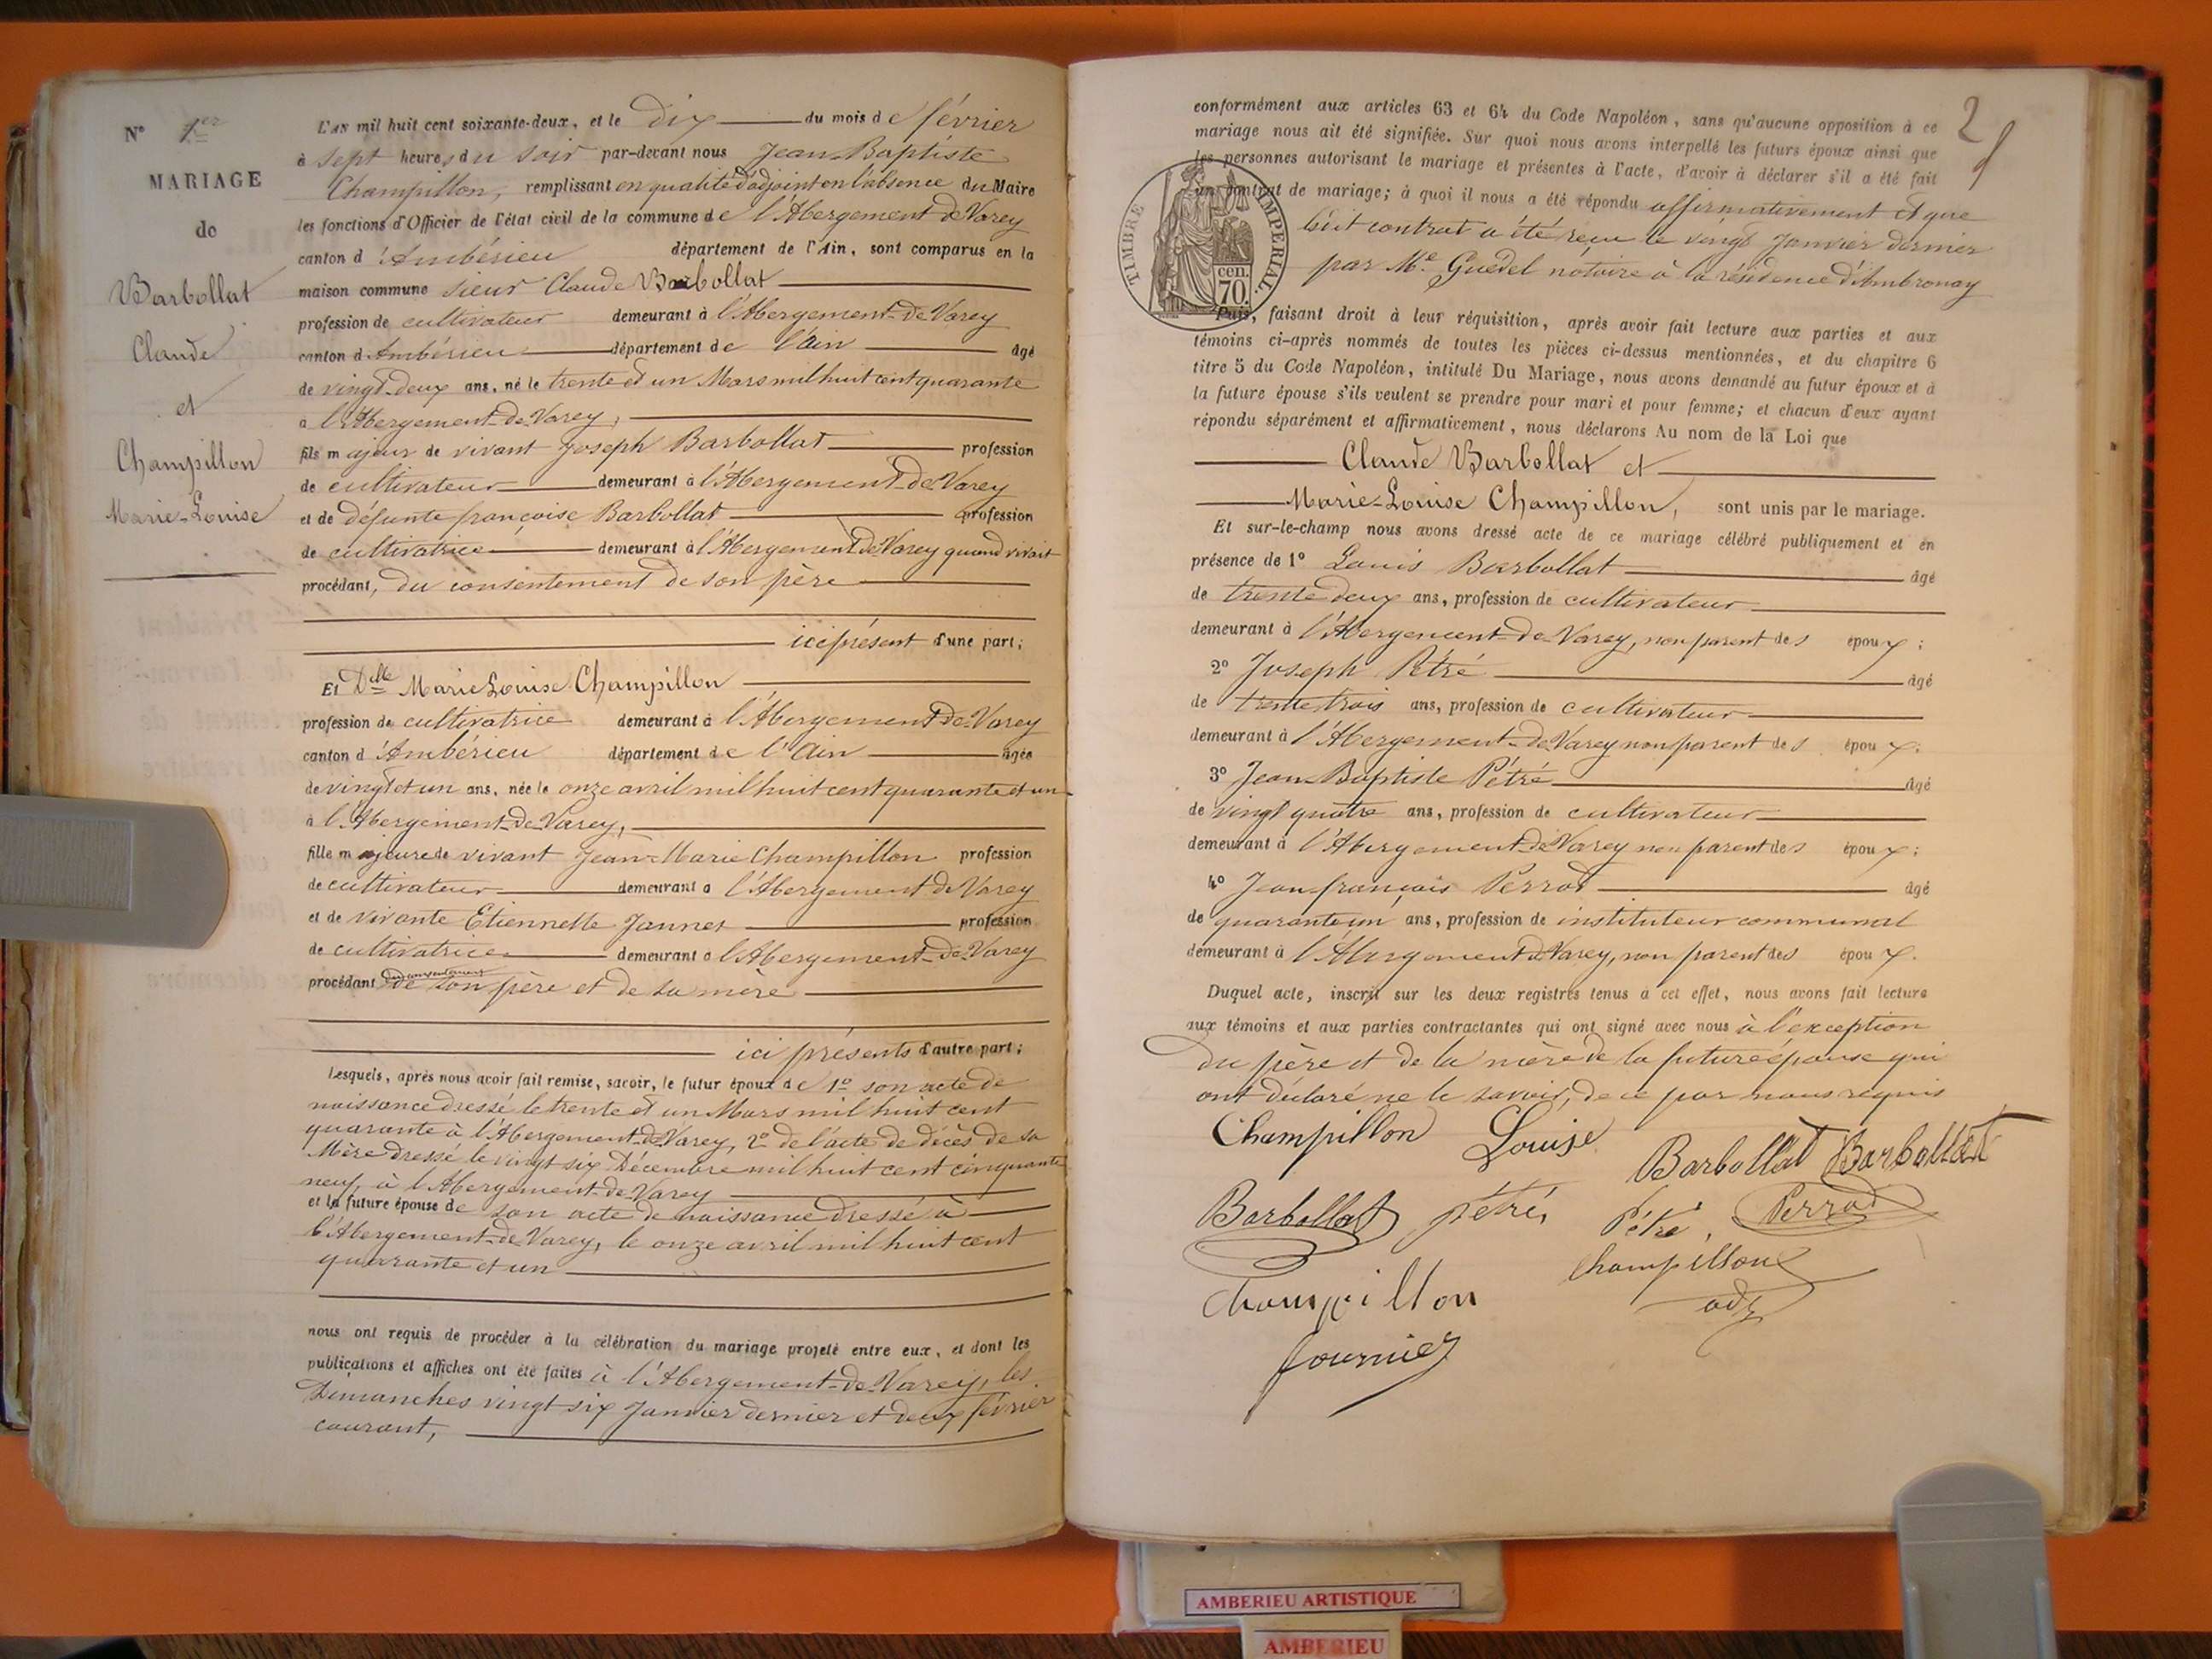 N° 1er
MARIAGE
de
Barbollat
Claude
et
Champillon
Marie-Louise
L'AN mil huit cent soixante-deux, et le dix du mois de février
à sept heures du soir par-devant nous Jean-Baptiste
Champillon, remplissant en qualité d'adjoint en l'absence du Maire
les fonctions d'Officier de l'état civil de la commune de l'Abergement de Varey
canton d'Ambérieu département de l'Ain, sont comparus en la
maison commune sieur Claude Barbollat
profession de cultivateur demeurant à l'Abergement-de-Varey
canton d'Ambérieu département de l'Ain âgé
de vingt-deux ans, né le trente et un Mars mil huit cent quarante
à l'Abergement-de-Varey,
fils majeur de vivant Joseph Barbollat profession
de cultivateur demeurant à l'Abergement-de-Varey
et de défunte françoise Barbollat profession
de cultivatrice demeurant à l'Abergement de Varey quand vivait
procédant, du consentement de son père
ici présent d'une part;
Et Dlle Marie Louise Champillon
profession de cultivatrice demeurant à l'Abergement-de-Varey
canton d'Ambérieu département de l'Ain âgée
de vingt et un ans, née le onze avril mil huit cent quarante et un
à l'Abergement-de-Varey,
fille majeure de vivant Jean-Marie Champillon profession
de cultivateur demeurant à l'Abergement de Varey
et de vivante Etiennette Jannet profession
de cultivatrice demeurant à l'Abergement-de-Varey
du consentement
procédant de son père et de sa mère
ici présents d'autre part;
Lesquels, après nous avoir fait remise, savoir, le futur époux de 1° son acte de
naissance dressé le trente et un Mars mil huit cent
quarante à l'Abergement-de-Varey, 2° de l'acte de décès de sa
Mère dressé le vingt six Décembre mil huit cent cinquante
neuf, à l'Abergement-de-Varey
et la future épouse de son acte de naissance dressé à
l'Abergement-de-Varey, le onze avril mil huit cent
quarante et un
nous ont requis de procéder à la célébration du mariage projeté entre eux, et dont les
publications et affiches ont été faites à l'Abergement-de-Varey, les
Dimanches vingt six Janvier dernier et deux février
courant,
2
conformément aux articles 63 et 64 du Code Napoléon, sans qu'aucune opposition à ce
mariage nous ait été signifiée. Sur quoi nous avons interpellé les futurs époux ainsi que
les personnes autorisant le mariage et présentes à l'acte, d'avoir à déclarer s'il a été fait
un contrat de mariage; à quoi il nous a été répondu affirmativement et que
TIMBRE IMPERIAL.
cen.
70.
ledit contrat a été reçu le vingt Janvier dernier
par Me Guedel notaire à la résidence d'Ambronay
Puis, faisant droit à leur réquisition, après avoir fait lecture aux parties et aux
témoins ci-après nommés de toutes les pièces ci-dessus mentionnées, et du chapitre 6
titre 5 du Code Napoléon, intitulé Du Mariage, nous avons demandé au futur époux et à
la future épouse s'ils veulent se prendre pour mari et pour femme; et chacun d'eux ayant
répondu séparément et affirmativement, nous déclarons Au nom de la Loi que
Claude Barbollat et
Marie-Louise Champillon, sont unis par le mariage.
Et sur-le-champ nous avons dressé acte de ce mariage célébré publiquement et en
présence de 1° Louis Barbollat âgé
de trente deux ans, profession de cultivateur
demeurant à l'Abergement-de-Varey, non parent des époux;
2° Joseph Pétré âgé
de trente trois ans, profession de cultivateur
demeurant à l'Abergement-de-Varey non parent des époux;
3° Jean-Baptiste Pétré âgé
de vingt quatre ans, profession de cultivateur
demeurant à l'Abergement-de-Varey non parent des époux;
4° Jean-françois Perrod âgé
de quarante un ans, profession de instituteur communal
demeurant à l'Abergement de Varey, non parent des époux.
Duquel acte, inscrit sur les deux registres tenus à cet effet, nous avons fait lecture
aux témoins et aux parties contractantes qui ont signé avec nous à l'exception
du père et de la mère de la future épouse qui
ont déclaré ne le savoir, de ce par nous requis
Champillon Louise Barbollat Barbollat
Barbollat pétré, Pétré, Perrod
Champillon Champillon
adj
fournier
AMBERIEU ARTISTIQUE
AMBERIEU